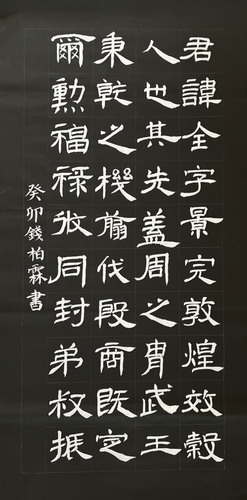 君諱全字景完敦煌效穀
人也其先蓋周之胄武王
秉乾之機翦伐殷商既定
爾勲福祿攸同封弟叔振
癸卯錢柏霖書